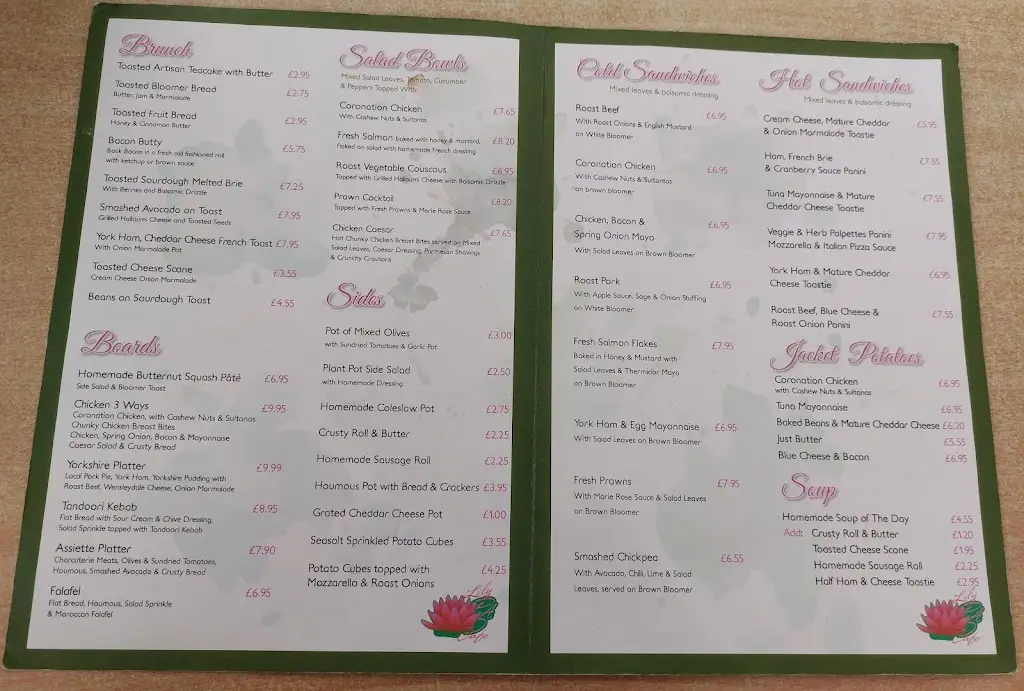 Brunch
Toasted Artisan Teacake with Butter £2.95
Toasted Bloomer Bread £2.75
Butter, Jam & Marmalade
Toasted Fruit Bread £2.95
Honey & Cinnamon Butter
Bacon Butty £5.75
Back Bacon in a fresh old fashioned roll
with ketchup or brown sauce
Toasted Sourdough Melted Brie £7.25
With Berries and Balsamic Drizzle
Smashed Avocado on Toast £7.95
Grilled Halloumi Cheese and Toasted Seeds
York Ham, Cheddar Cheese French Toast £7.95
With Onion Marmalade Pot
Toasted Cheese Scone £3.55
Cream Cheese Onion Marmalade
Beans on Sourdough Toast £4.55
Boards
Homemade Butternut Squash Pâté £6.95
Side Salad & Bloomer Toast
Chicken 3 Ways £9.95
Coronation Chicken, with Cashew Nuts & Sultanas
Chunky Chicken Breast Bites
Chicken, Spring Onion, Bacon & Mayonnaise
Caesar Salad & Crusty Bread
Yorkshire Platter £9.99
Local Pork Pie, York Ham, Yorkshire Pudding with
Roast Beef, Wensleydale Cheese, Onion Marmalade
Tandoori Kebab £8.95
Flat Bread with Sour Cream & Chive Dressing,
Salad Sprinkle topped with Tandoori Kebab
Assiette Platter £7.90
Charcuterie Meats, Olives & Sundried Tomatoes,
Houmous, Smashed Avocado & Crusty Bread
Falafel £6.95
Flat Bread, Houmous, Salad Sprinkle
& Moroccan Falafel
Salad Bowls
Mixed Salad Leaves, Tomato, Cucumber
& Peppery Topped With:
Coronation Chicken £7.65
With Cashew Nuts & Sultanas
Fresh Salmon baked with honey & mustard, £8.20
flaked on salad with homemade French dressing
Roast Vegetable Couscous £6.95
Topped with Grilled Halloumi Cheese with Balsamic Drizzle
Prawn Cocktail £8.20
Topped with Fresh Prawns & Marie Rose Sauce
Chicken Caesar £7.65
Hot Chunky Chicken Breast Bites served on Mixed
Salad Leaves, Caesar Dressing, Parmesan Shavings
& Crunchy Croutons
Sides
Pot of Mixed Olives £3.00
with Sundried Tomatoes & Garlic Pot
Plant Pot Side Salad £2.50
with Homemade Dressing
Homemade Coleslaw Pot £2.75
Crusty Roll & Butter £2.25
Homemade Sausage Roll £2.25
Houmous Pot with Bread & Crackers £3.95
Grated Cheddar Cheese Pot £1.00
Seasalt Sprinkled Potato Cubes £3.55
Potato Cubes topped with £4.25
Mozzarella & Roast Onions
Lily
Cafe
Cold Sandwiches
Mixed leaves & balsamic dressing
Roast Beef £6.95
With Roast Onions & English Mustard
on White Bloomer
Coronation Chicken £6.95
With Cashew Nuts & Sultantas
on brown bloomer
Chicken, Bacon & £6.95
Spring Onion Mayo
With Salad Leaves on Brown Bloomer
Roast Pork £6.95
With Apple Sauce, Sage & Onion Stuffing
on White Bloomer
Fresh Salmon Flakes £7.95
Baked in Honey & Mustard with
Salad Leaves & Thermidor Mayo
on Brown Bloomer
York Ham & Egg Mayonnaise £6.95
With Salad Leaves on Brown Bloomer
Fresh Prawns £7.95
With Marie Rose Sauce & Salad Leaves
on Brown Bloomer
Smashed Chickpea £6.55
With Avocado, Chilli, Lime & Salad
Leaves, served on Brown Bloomer
Hot Sandwiches
Mixed leaves & balsamic dressing
Cream Cheese, Mature Cheddar £5.95
& Onion Marmalade Toastie
Ham, French Brie £7.55
& Cranberry Sauce Panini
Tuna Mayonnaise & Mature £7.55
Cheddar Cheese Toastie
Veggie & Herb Polpettes Panini £7.95
Mozzarella & Italian Pizza Sauce
York Ham & Mature Cheddar £6.95
Cheese Toastie
Roast Beef, Blue Cheese & £7.55
Roast Onion Panini
Jacket Potatoes
Coronation Chicken £6.95
with Cashew Nuts & Sultanas
Tuna Mayonnaise £6.95
Baked Beans & Mature Cheddar Cheese £6.20
Just Butter £5.55
Blue Cheese & Bacon £6.95
Soup
Homemade Soup of The Day £4.55
Add: Crusty Roll & Butter £1.20
Toasted Cheese Scone £1.95
Homemade Sausage Roll £2.25
Half Ham & Cheese Toastie £2.95
Lily
Cafe